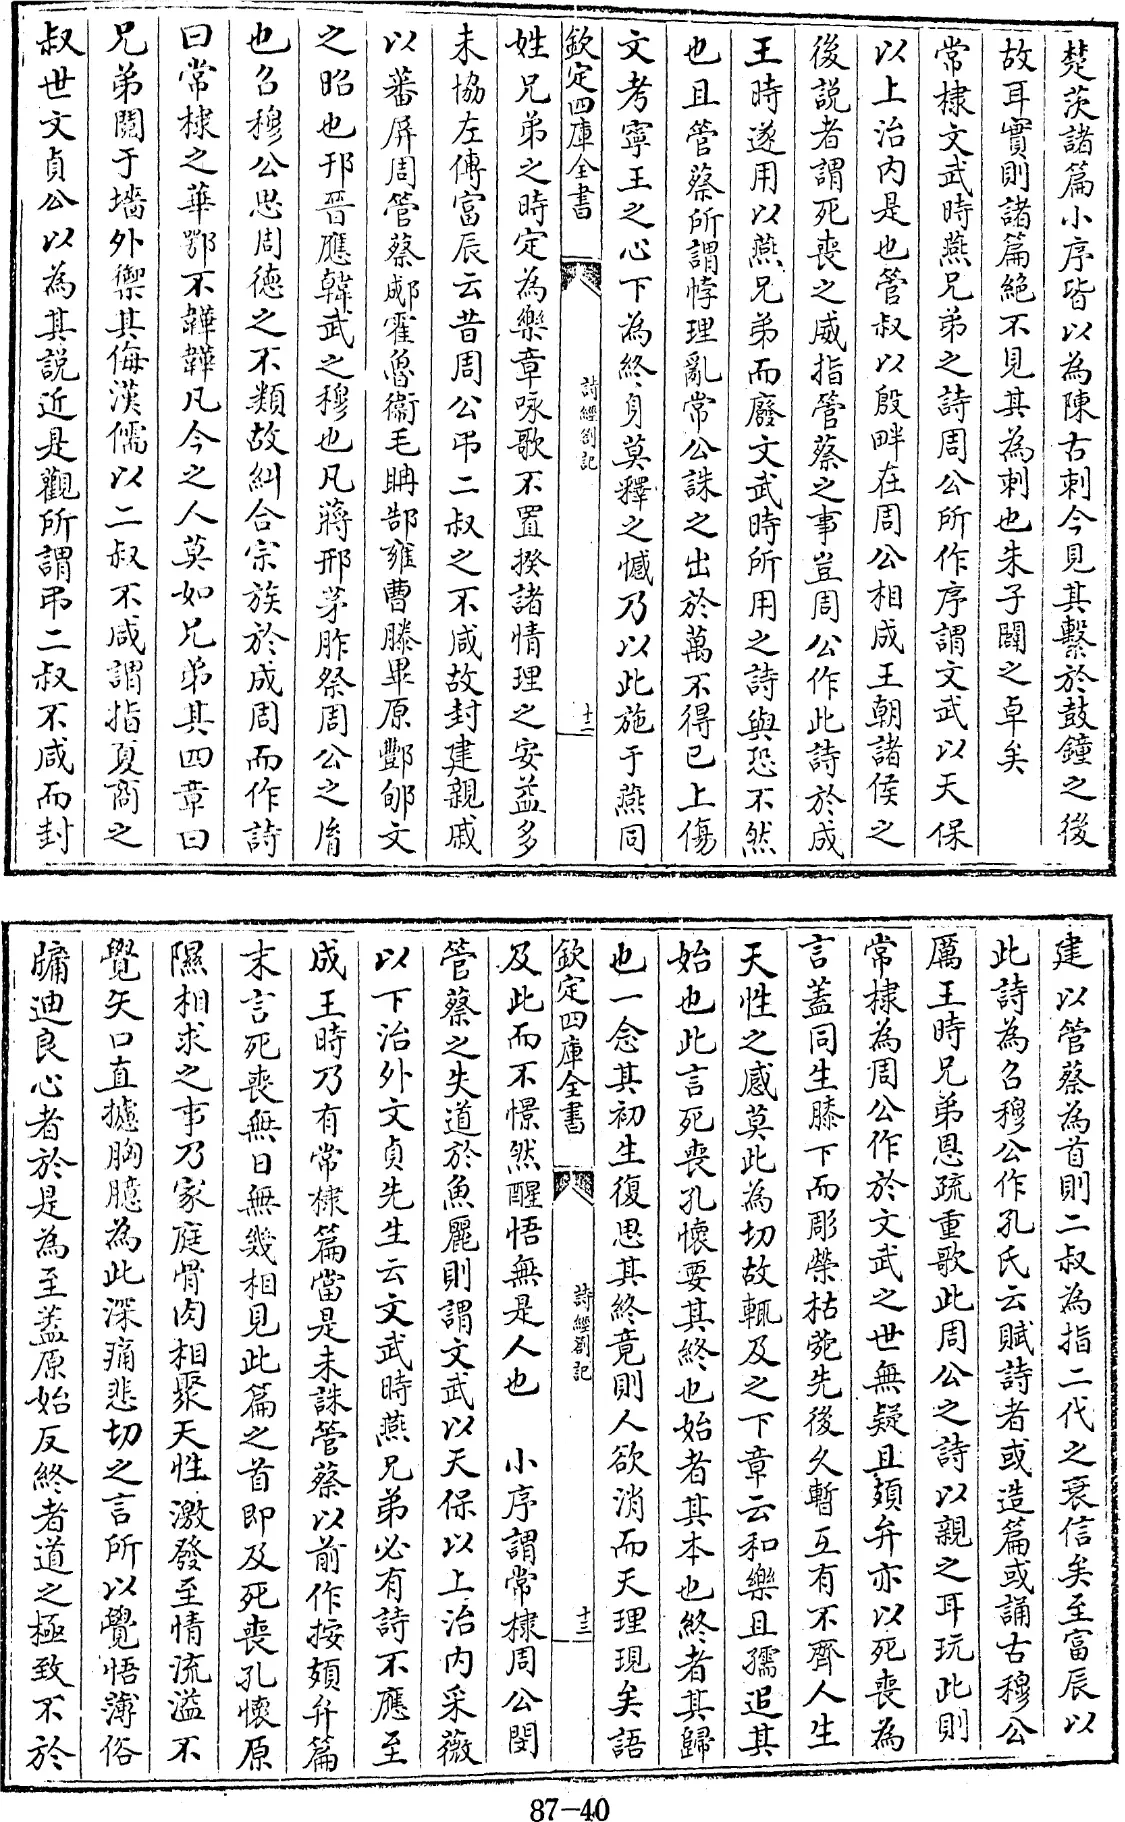 楚茨諸篇小序皆以為陳古刺今見其繫於鼓鐘之後
故耳實則諸篇絶不見其為刺也朱子闢之卓矣
常棣文武時燕兄弟之詩周公所作序謂文武以天保
以上治内是也管叔以殷畔在周公相成王朝諸侯之
後説者謂死喪之威指管蔡之事豈周公作此詩於成
王時遂用以燕兄弟而廢文武時所用之詩與恐不然
也且管蔡所謂悖理亂常公誅之出於萬不得已上傷
文考寧王之心下為終身莫釋之憾乃以此施于燕同
欽定四庫全書
詩經劄記
十二
姓兄弟之時定為樂章咏歌不置揆諸情理之安益多
未協左傳富辰云昔周公弔二叔之不咸故封建親戚
以蕃屏周管蔡郕霍魯衞毛聃郜雍曹滕畢原酆郇文
之昭也邘晋應韓武之穆也凡蔣邢茅胙祭周公之𦙍
也召穆公思周德之不類故糾合宗族於成周而作詩
曰常棣之華鄂不韡韡凡今之人莫如兄弟其四章曰
兄弟鬩于墻外禦其侮漢儒以二叔不咸謂指夏商之
叔世文貞公以為其説近是觀所謂弔二叔不咸而封
建以管蔡為首則二叔為指二代之衰信矣至富辰以
此詩為召穆公作孔氏云賦詩者或造篇或誦古穆公
厲王時兄弟恩疏重歌此周公之詩以親之耳玩此則
常棣為周公作於文武之世無疑且頍弁亦以死喪為
言蓋同生膝下而彫榮枯菀先後久暫互有不齊人生
天性之感莫此為切故輒及之下章云和樂且孺追其
始也此言死喪孔懷要其終也始者其本也終者其歸
也一念其初生復思其終竟則人欲消而天理現矣語
欽定四庫全書
詩經劄記
十三
及此而不憬然醒悟無是人也 小序謂常棣周公閔
管蔡之失道於魚麗則謂文武以天保以上治内采薇
以下治外文貞先生云文武時燕兄弟必有詩不應至
成王時乃有常棣篇當是未誅管蔡以前作按頍弁篇
末言死喪無日無幾相見此篇之首即及死喪孔懷原
隰相求之事乃家庭骨肉相聚天性激發至情流溢不
覺矢口直攄胸臆為此深痛悲切之言所以覺悟薄俗
牖迪良心者於是為至蓋原始反終者道之極致不於
87-40